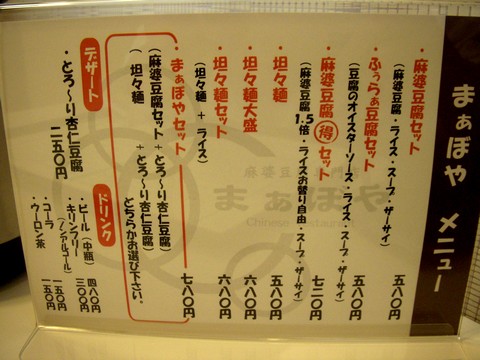 まぁぼや メニュー
・麻婆豆腐セット
(麻婆豆腐・ライス・スープ・ザーサイ) 五八〇円
・ふぅらぁ豆腐セット
(豆腐のオイスターソース・ライス・スープ・ザーサイ) 五八〇円
・麻婆豆腐得セット
(麻婆豆腐1.5倍・ライスお替り自由・スープ・ザーサイ) 七二〇円
・坦々麺 五八〇円
・坦々麺大盛 六八〇円
・坦々麺セット
(坦々麺 + ライス) 六八〇円
・まぁぼやセット 七八〇円
(麻婆豆腐セット + とろ〜り杏仁豆腐)
(坦々麺 + とろ〜り杏仁豆腐)
どちらかお選び下さい.
デザート
・とろ〜り杏仁豆腐 二五〇円
ドリンク
・ビール(中瓶) 四八〇円
・キリンフリー (ノンアルコール) 三〇〇円
・コーラ 一五〇円
・ウーロン茶 一五〇円
まぁぼや